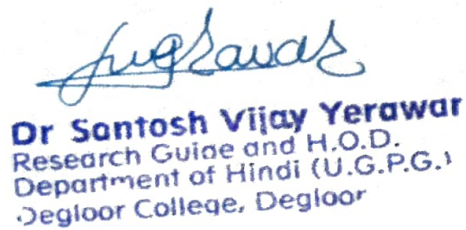 Dr Santosh Vijay Yerawar
Research Guide and H.O.D.
Department of Hindi (U.G.P.G.)
Degloor College, Degloor